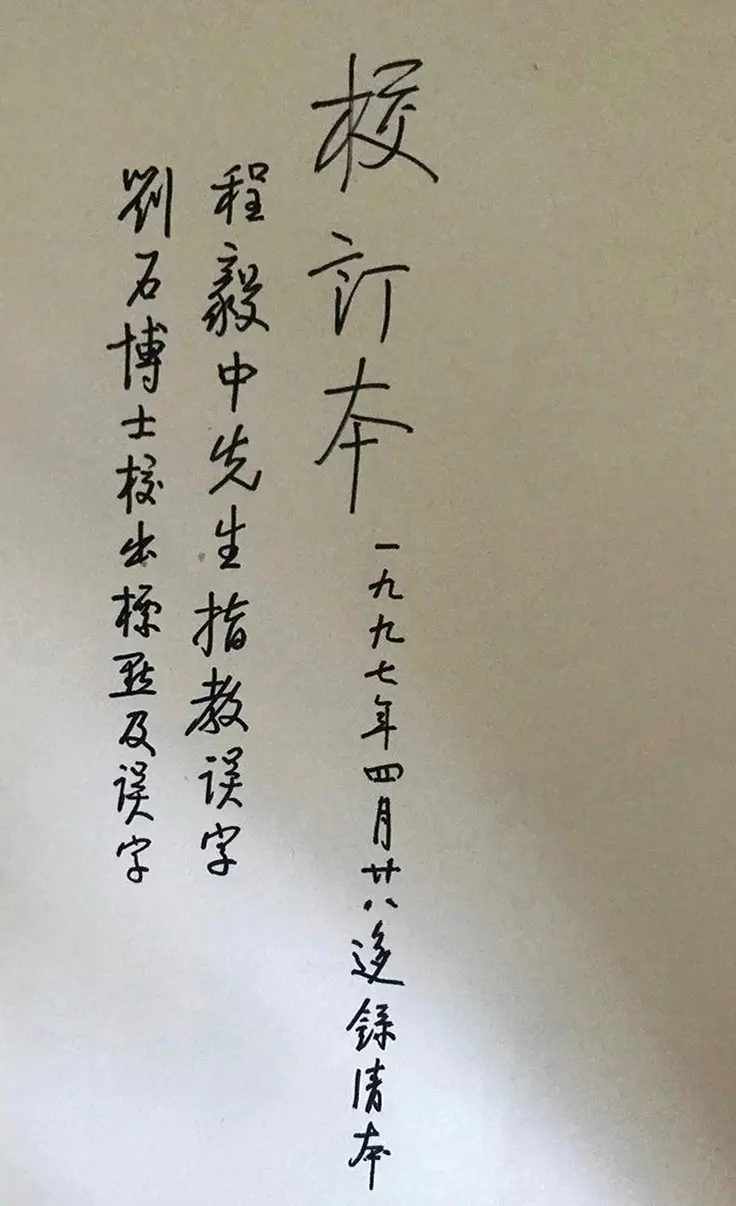 校订本 一九九七年四月廿八迻錄清本
程毅中先生指教误字
劉石博士校出標點及误字